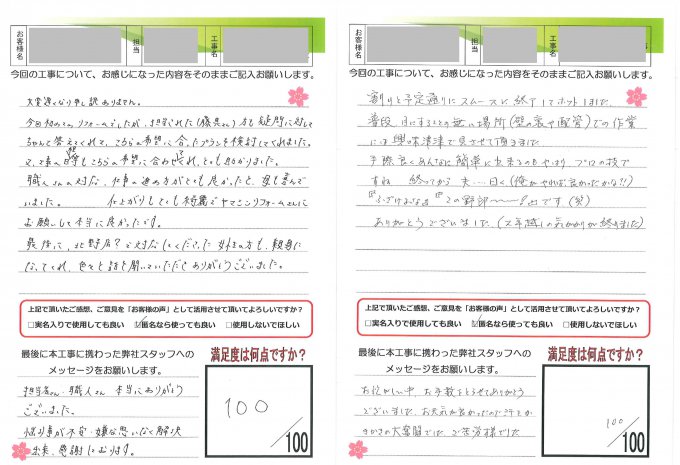 お客様名
担当
工事名
今回の工事について、お感じになった内容をそのままご記入お願いします。
大変遅くなり申し訳ありません。
今回初めてのリフォームでしたが、担当された(勝呉さん)方も疑問に対して
ちゃんと答えてくれて、こちらの希望に合ったプランを検討してくれました。
又、工事の日程もこちらの希望に合わせてくれ、とても助かりました。
職人さんの対応、仕事の進め方がとても良かったと、母も喜んで
いました。 仕上がりもとても綺麗でヤマニシリフォームさんに
お願いして本当に良かったです。
最後に、北野店?で対応してくださった 女性の方も、親身に
なってくれ、色々と話を聞いていただき ありがとうございました。
上記で頂いたご感想、ご意見を「お客様の声」として活用させて頂いてよろしいですか?
□実名入りで使用しても良い ☑匿名なら使っても良い □使用しないでほしい
最後に本工事に携わった弊社スタッフへの
メッセージをお願いします。
担当者さん・職人さん 本当にありがとう
ございました。
悩み事が不安・嫌な思いなく解決
出来、感謝しております。
満足度は何点ですか?
100
/100
お客様名
担当
工事名
今回の工事について、お感じになった内容をそのままご記入お願いします。
割りと予定通りにスムーズに終了してホットしました。
普段、目にすることの無い場所(壁の裏や配管)での作業
には興味津津で見させて頂きました
手際良くあんなに簡単に出来るのもやはりプロの技で
すね 終ってから 夫…曰く(俺がやれば良かったかな?!)
『ふざけるなよ』『この野郎〜〜〜?』です(笑)
ありがとうございました。(2年越しの気がかりが終りました)
上記で頂いたご感想、ご意見を「お客様の声」として活用させて頂いてよろしいですか?
□実名入りで使用しても良い ☑匿名なら使っても良い □使用しないでほしい
最後に本工事に携わった弊社スタッフへの
メッセージをお願いします。
お忙しい中、お手数をとらせてありがとう
ございました。お天気が良かったので汗とか
すかさの大奮闘でした。ご苦労様でした
満足度は何点ですか?
100
/100